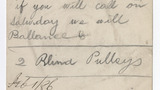 if you will call on
Saturday we will
Ballance &
2 Blind Pulleys
Feb 1/26